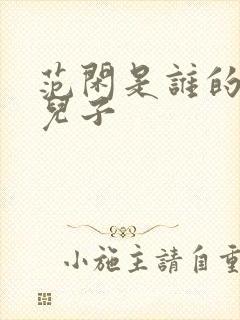 范閑是誰的
兒子
小施主請自重